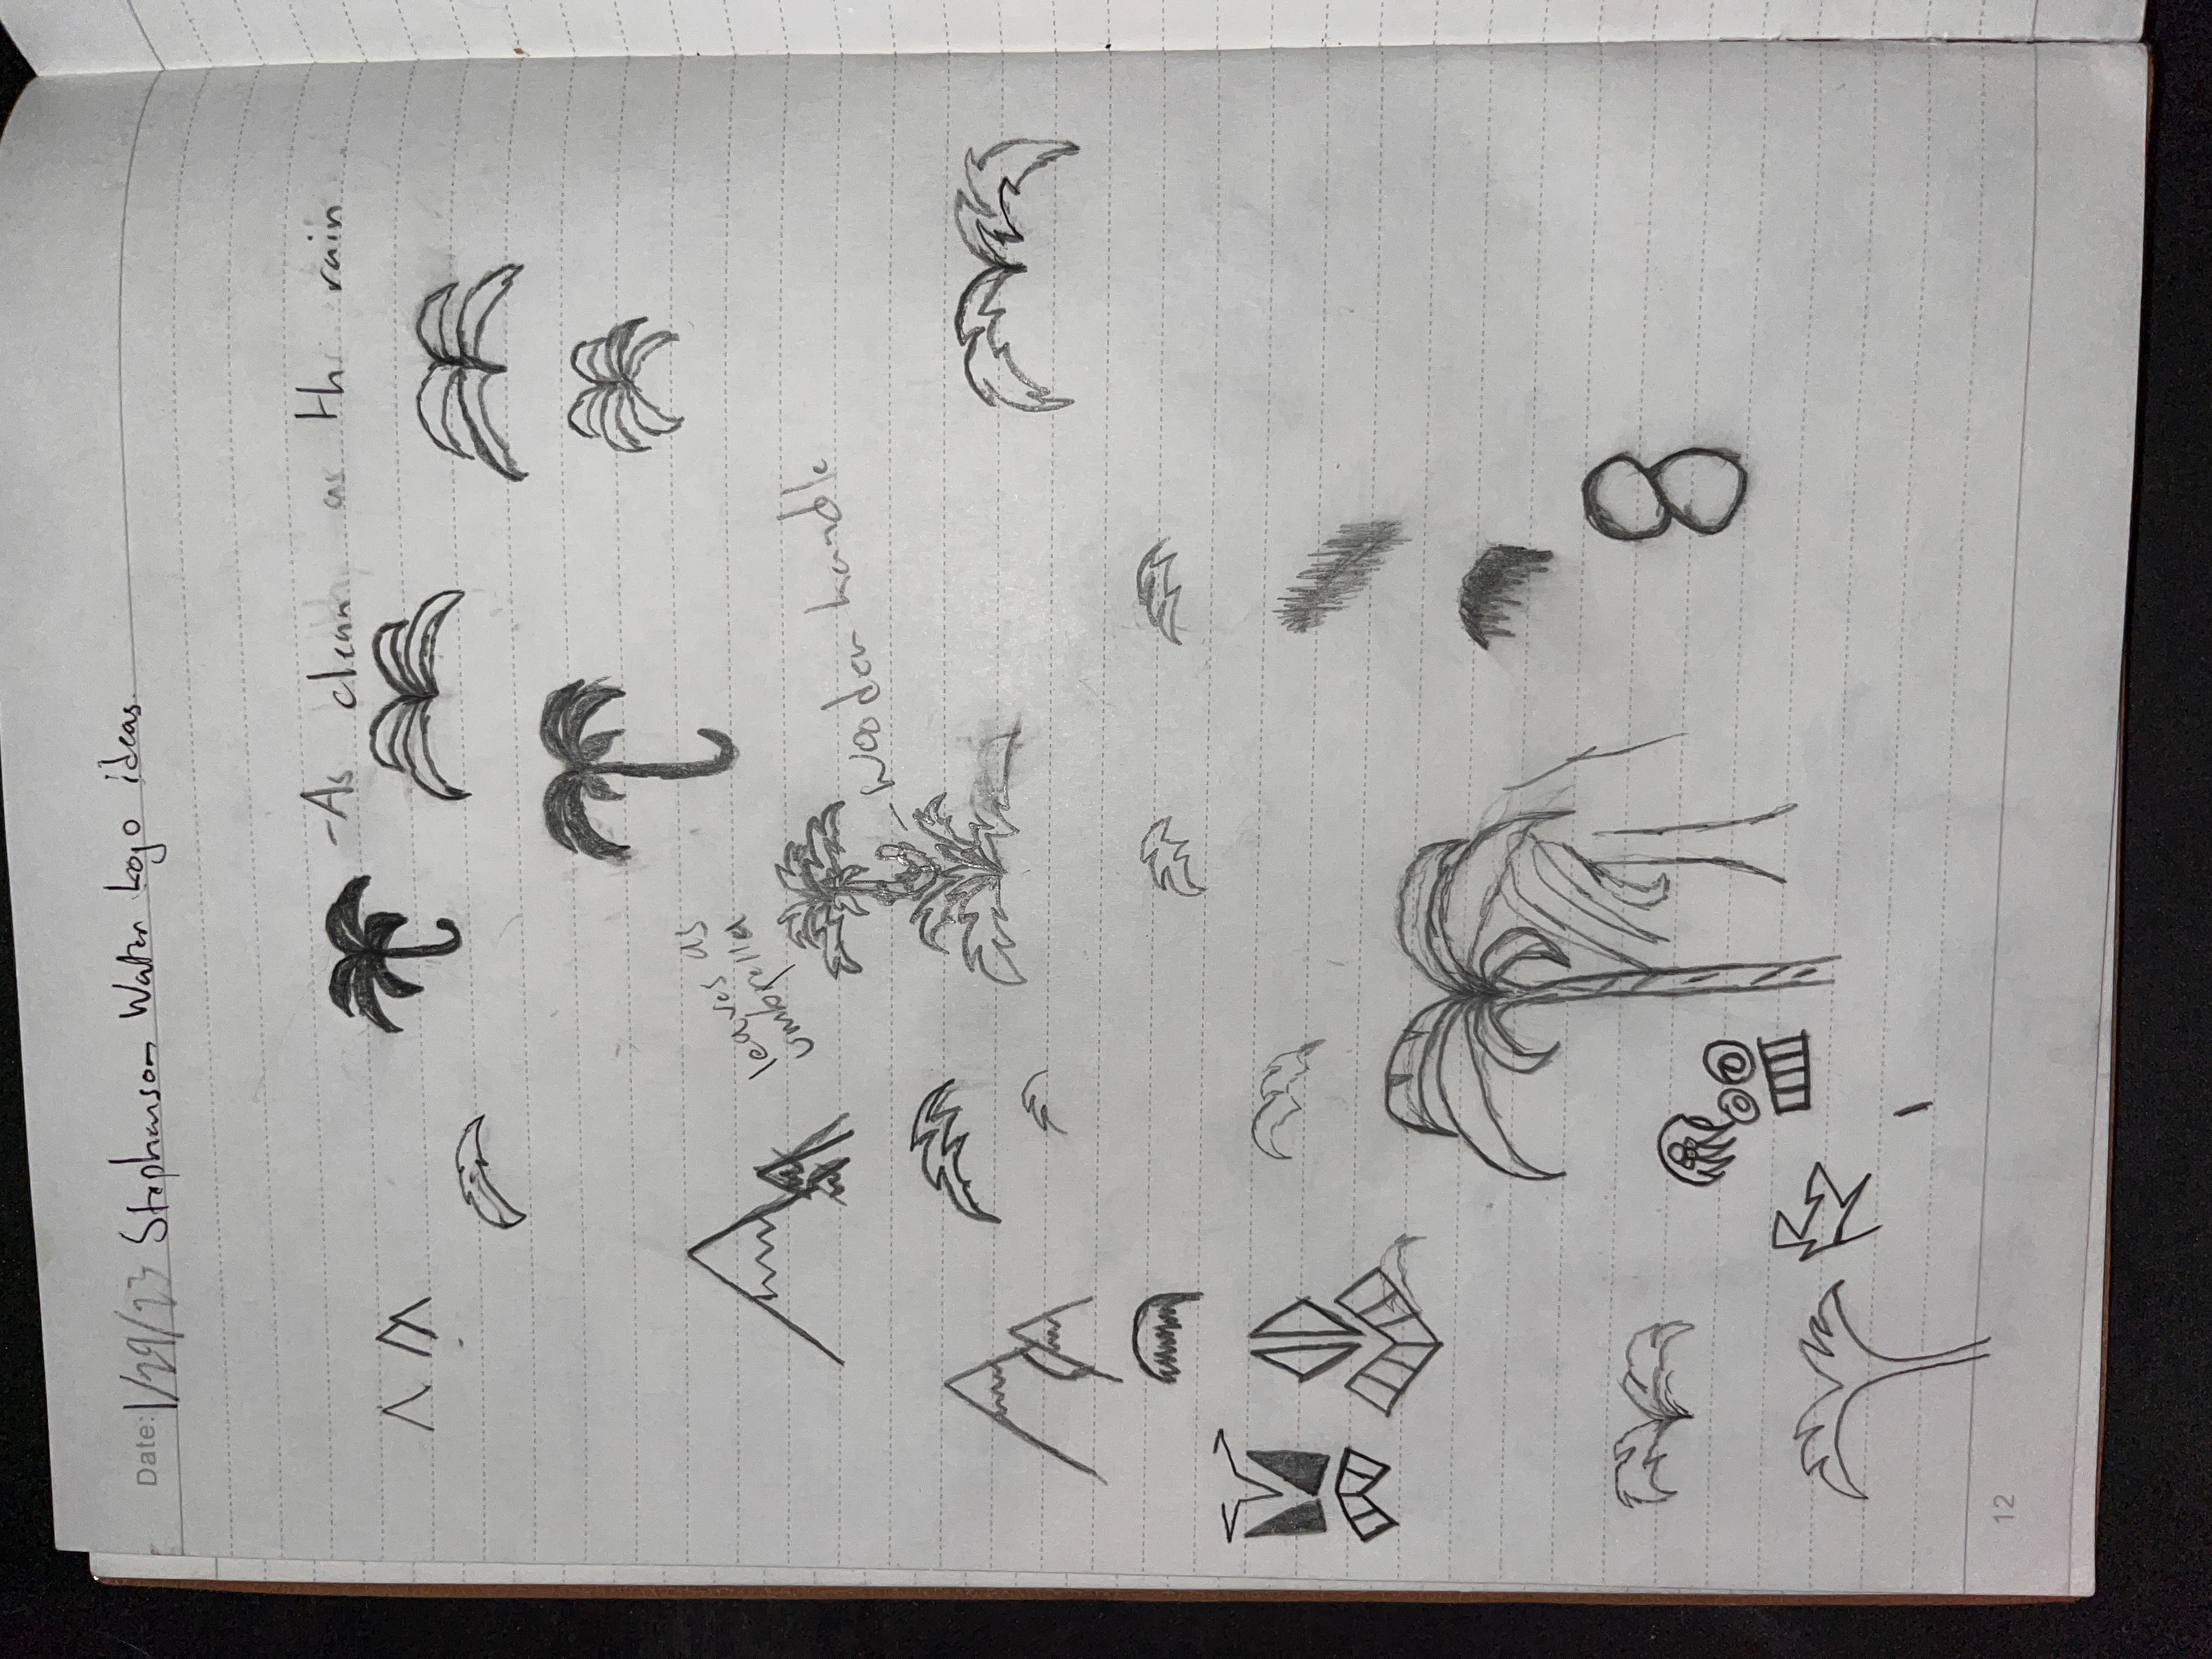 Date: 1/29/23 Stephenson Water Logo ideas.
-As clean as th rain
leaves as
umbrella
-Wooden handle
12